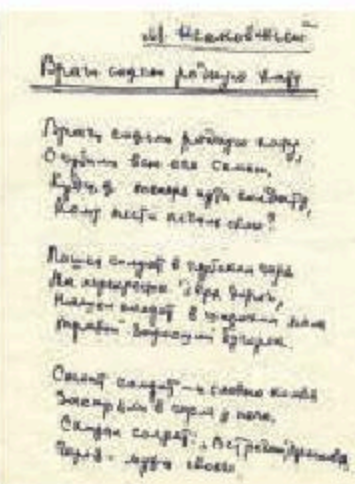 М. Исаковский
Враги сожгли родную хату
Враги сожгли родную хату,
Сгубили всю его семью,
Куда ж теперь идти солдату,
Кому нести печаль свою?
Пошел солдат в глубоком горе
На перекресток двух дорог,
Нашел солдат в широком поле
Травой заросший бугорок.
Стоит солдат — и словно комья
Застряли в горле у него.
Сказал солдат: